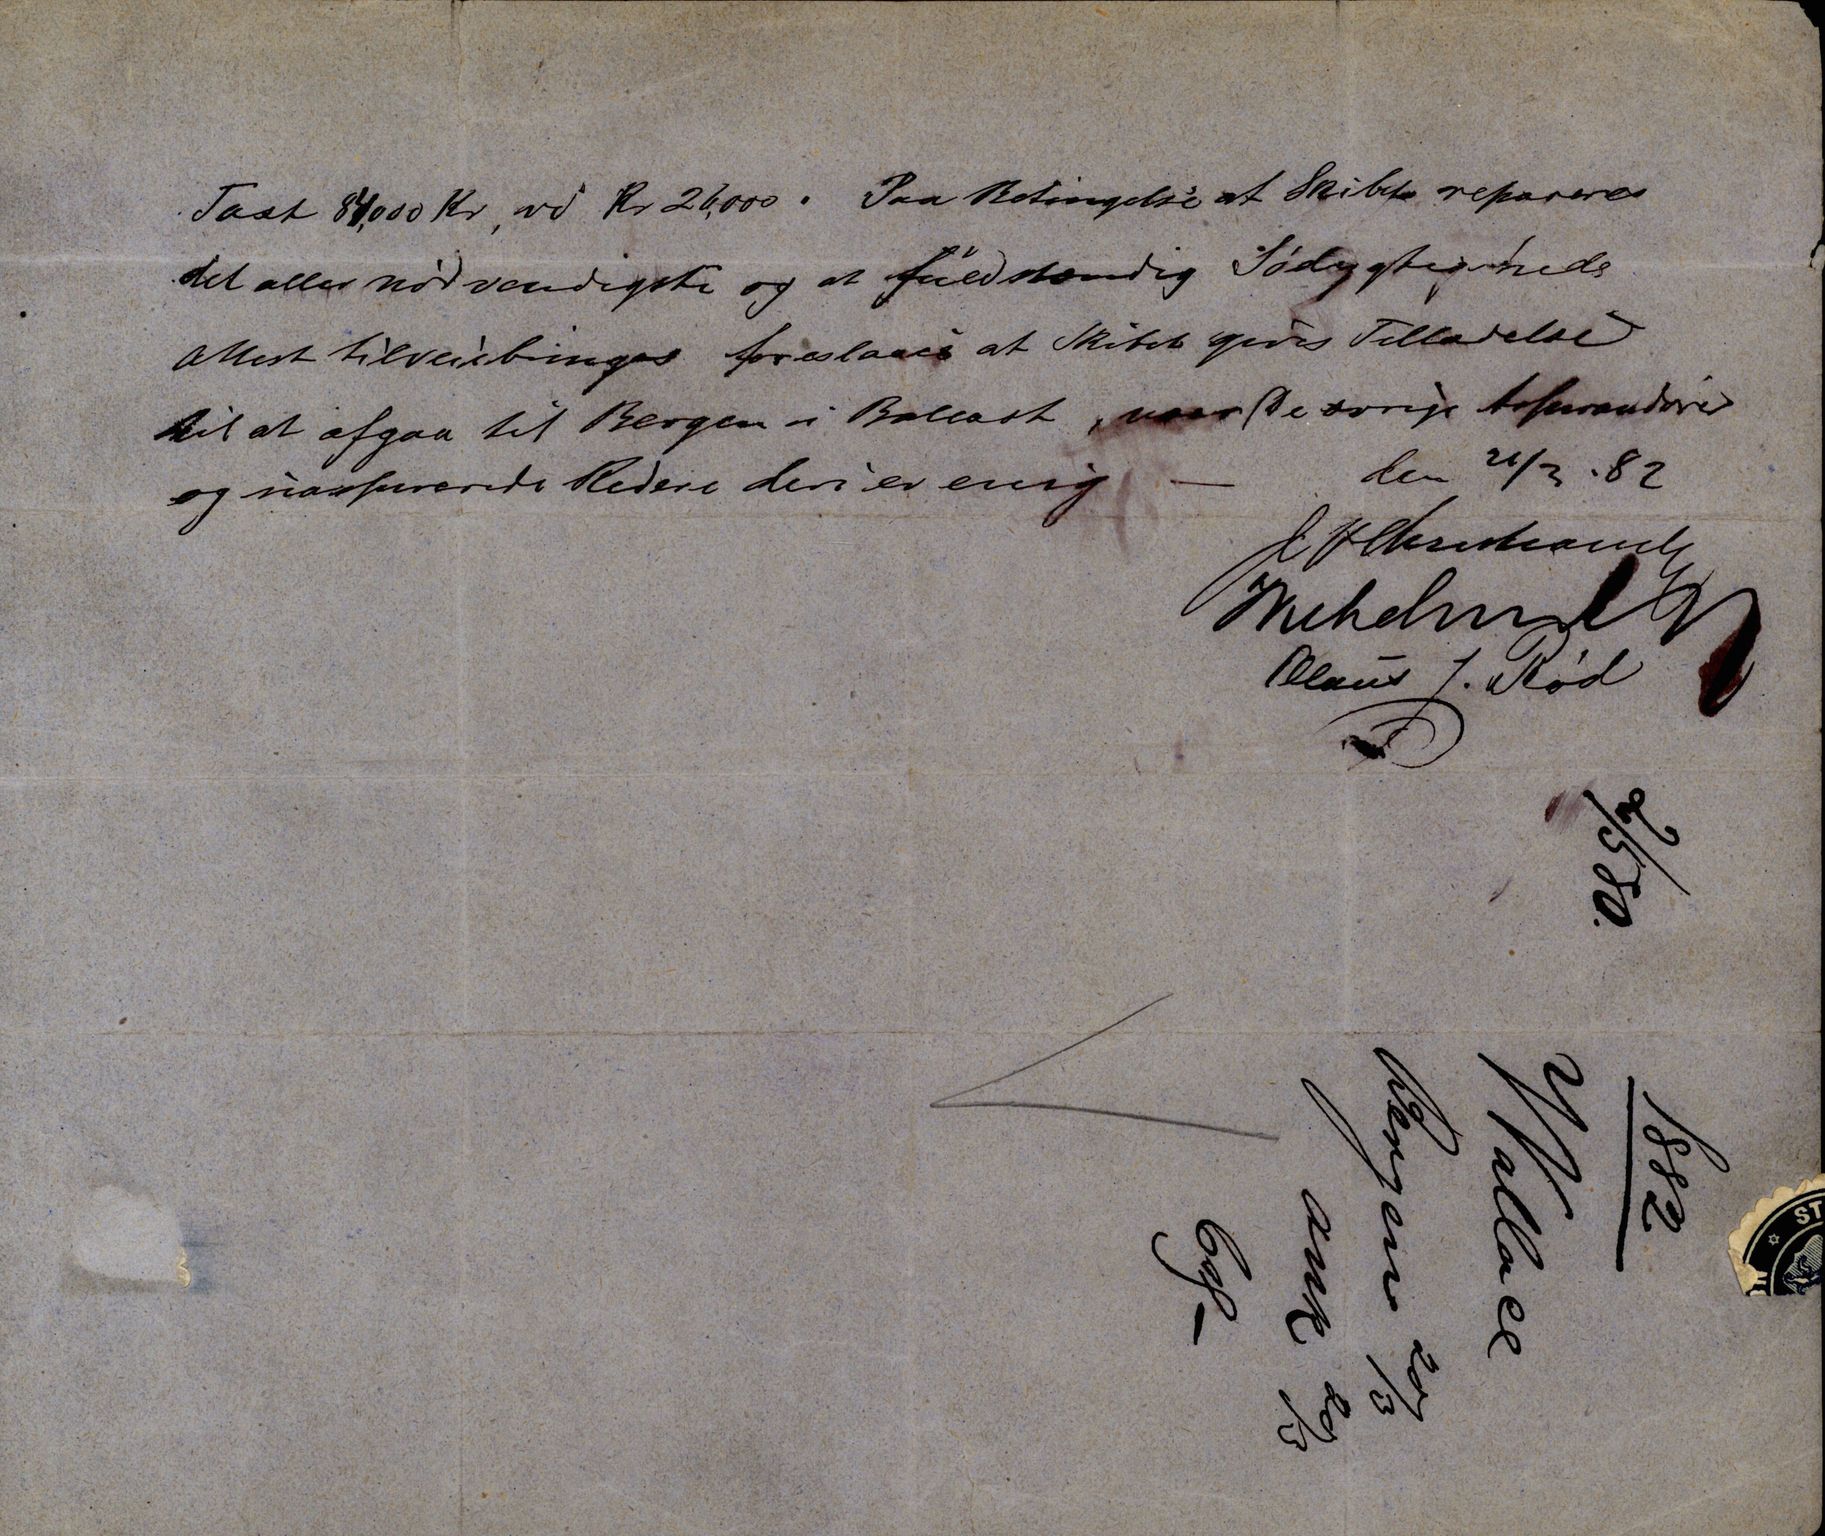 Taxt 84,000 Kr, vi Kr 26,000. Paa Betingelse at Skibet repareres
det aller nødvendigste og at fuldstændig Sødygtigheds
Attest tilveiebringes foreslaaes at Skibet gives Tilladelse
til at afgaa til Bergen i Ballast, naar De øvrige Assurandører
og uassurerede Redere deri er enig —
den 21/3 .82
Claus J. Rød
2/580.
1882
Wallace
Bergen 20/3
ank 20/3